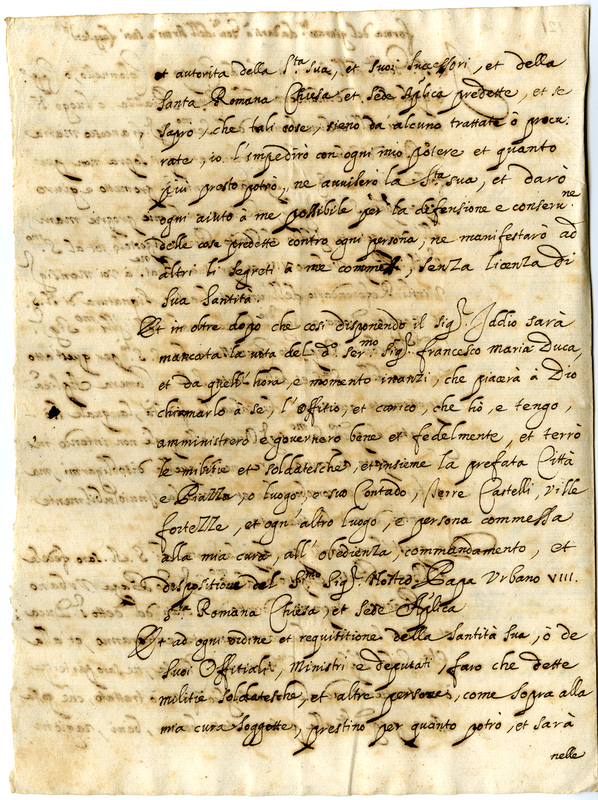 et autorita della S.ta sua, et suoi successori, et della
Santa Romana Chiesa et Sede Aplica predette, et se
saprò, che tali cose, sieno da alcuno trattate ò procu:
rate, io l'impedirò con ogni mio potere et quanto
più presto potrò, ne avvilerò la S.ta sua, et darò
ogni aiuto à me possibile per la defensione e conseru.ne
delle cose predette contro ogni persona, ne manifestarò ad
altri li segreti à me commessi, senza licenza di
sua Santità.
Et in oltre dopò che così disponendo il Sig.r Idio sarà
mancata la vita del d.o Ser.mo Sig.r francesco maria Duca,
et da quell'hora, e momento inanzi, che piacerà à Dio
chiamarlo à se, l'offitio, et carico, che hò, e tengo,
amministrerò e governaro bene et fedelmente, et terrò
le militie et soldatesche, et insieme la prefata Città
e Piazza, o luogo, o suo Contado, Terre Castelli, Ville
fortezze, et ogni altro luogo, e persona commessa
alla mia cura, all'obedienza, commendamento, et
despositione del S.mo Sig.r Nostro Papa Urbano VIII.
S.ta Romana Chiesa, et Sede Aplica
Et ad ogni ordine et requisitione della Santità Sua, ò de
Suoi Offitiali, Ministri e deputati, faro che dette
militie soldatesche, et altre persone, come sopra alla
mia cura soggette, prestino per quanto potrò, et sarà
nelle